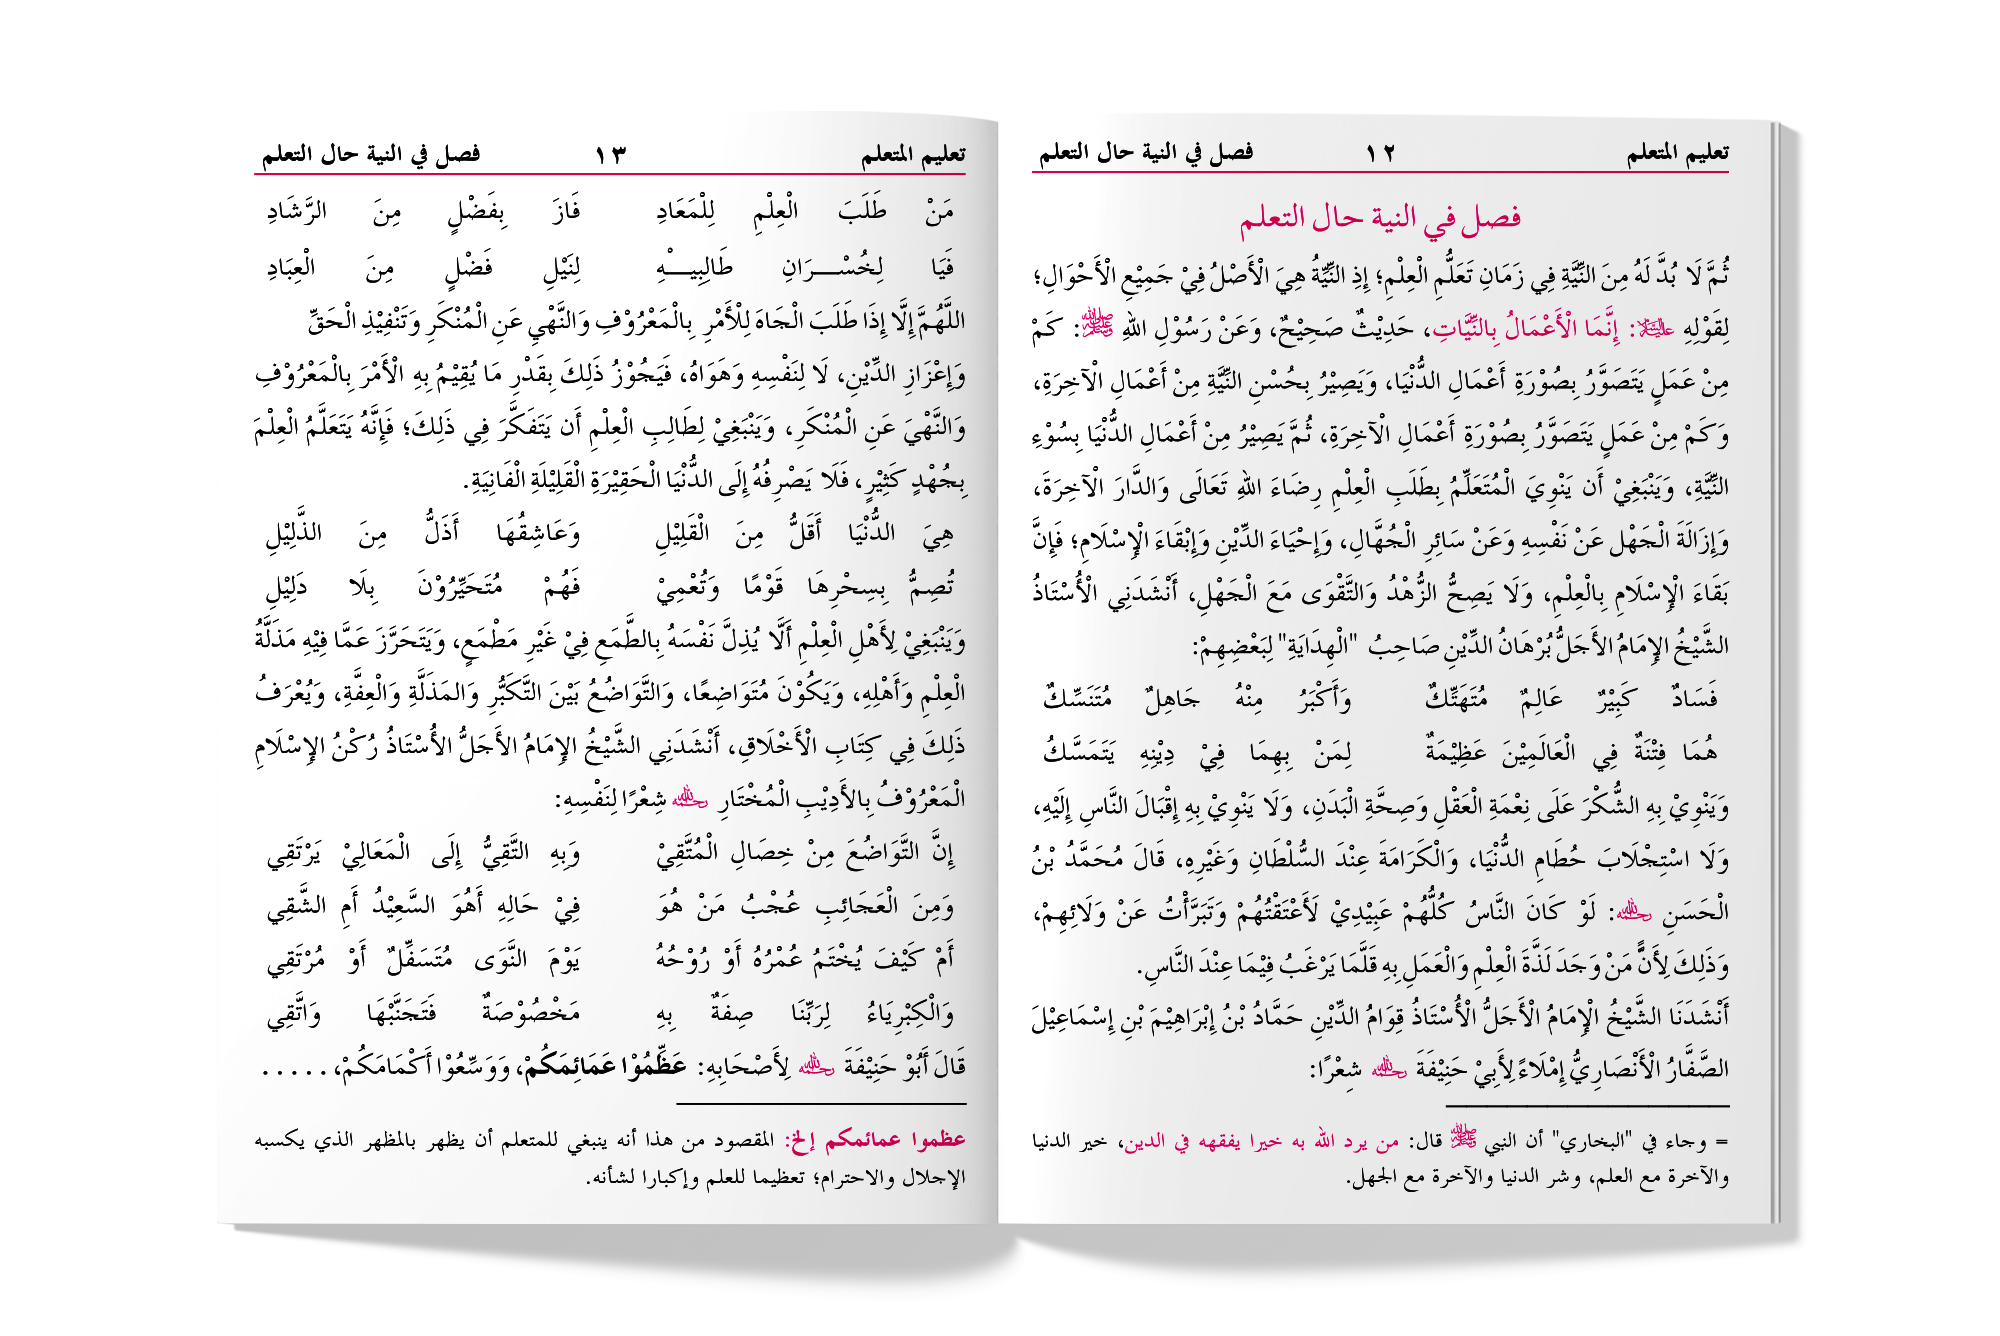 تعليم المتعلم ١٢ فصل في النية حال التعلم
فصل في النية حال التعلم
ثُمَّ لَا بُدَّ لَهُ مِنَ النِّيَّةِ فِي زَمَانِ تَعَلُّمِ الْعِلْمِ؛ إِذِ النِّيَّةُ هِيَ الْأَصْلُ فِيْ جَمِيْعِ الْأَحْوَالِ؛
لِقَوْلِهِ عليه السلام: إِنَّمَا الْأَعْمَالُ بِالنِّيَّاتِ، حَدِيْثٌ صَحِيْحٌ، وَعَنْ رَسُوْلِ اللهِ ﷺ: كَمْ
مِنْ عَمَلٍ يَتَصَوَّرُ بِصُوْرَةِ أَعْمَالِ الدُّنْيَا، وَيَصِيْرُ بِحُسْنِ النِّيَّةِ مِنْ أَعْمَالِ الْآخِرَةِ،
وَكَمْ مِنْ عَمَلٍ يَتَصَوَّرُ بِصُوْرَةِ أَعْمَالِ الْآخِرَةِ، ثُمَّ يَصِيْرُ مِنْ أَعْمَالِ الدُّنْيَا بِسُوْءِ
النِّيَّةِ، وَيَنْبَغِيْ أَن يَنْوِيَ الْمُتَعَلِّمُ بِطَلَبِ الْعِلْمِ رِضَاءَ اللهِ تَعَالَى وَالدَّارَ الْآخِرَةَ،
وَإِزَالَةَ الْجَهْلِ عَنْ نَفْسِهِ وَعَنْ سَائِرِ الْجُهَّالِ، وَإِحْيَاءَ الدِّيْنِ وَإِبْقَاءَ الْإِسْلَامِ؛ فَإِنَّ
بَقَاءَ الْإِسْلَامِ بِالْعِلْمِ، وَلَا يَصِحُّ الزُّهْدُ وَالتَّقْوَى مَعَ الْجَهْلِ، أَنْشَدَنِي الْأُسْتَاذُ
الشَّيْخُ الإِمَامُ الأَجَلُّ بُرْهَانُ الدِّيْنِ صَاحِبُ "الْهِدَايَةِ" لِبَعْضِهِمْ:
فَسَادٌ كَبِيْرٌ عَالِمٌ مُتَهَتِّكٌ وَأَكْبَرُ مِنْهُ جَاهِلٌ مُتَنَسِّكٌ
هُمَا فِتْنَةٌ فِي الْعَالَمِيْنَ عَظِيْمَةٌ لِمَنْ بِهِمَا فِيْ دِيْنِهِ يَتَمَسَّكُ
وَيَنْوِيْ بِهِ الشُّكْرَ عَلَى نِعْمَةِ الْعَقْلِ وَصِحَّةِ الْبَدَنِ، وَلَا يَنْوِيْ بِهِ إِقْبَالَ النَّاسِ إِلَيْهِ،
وَلَا اسْتِجْلَابَ حُطَامِ الدُّنْيَا، وَالْكَرَامَةَ عِنْدَ السُّلْطَانِ وَغَيْرِهِ، قَالَ مُحَمَّدُ بْنُ
الْحَسَنِ رحمه الله: لَوْ كَانَ النَّاسُ كُلُّهُمْ عَبِيْدِيْ لَأَعْتَقْتُهُمْ وَتَبَرَّأْتُ عَنْ وَلَائِهِمْ،
وَذَلِكَ لِأَنَّ مَنْ وَجَدَ لَذَّةَ الْعِلْمِ وَالْعَمَلِ بِهِ قَلَّمَا يَرْغَبُ فِيْمَا عِنْدَ النَّاسِ.
أَنْشَدَنَا الشَّيْخُ الْإِمَامُ الْأَجَلُّ الْأُسْتَاذُ قِوَامُ الدِّيْنِ حَمَّادُ بْنُ إِبْرَاهِيْمَ بْنِ إِسْمَاعِيْلَ
الصَّفَّارُ الْأَنْصَارِيُّ إِمْلَاءً لِأَبِيْ حَنِيْفَةَ رحمه الله شِعْرًا:
= وجاء في "البخاري" أن النبي ﷺ قال: من يرد الله به خيرا يفقهه في الدين، خير الدنيا
والآخرة مع العلم، وشر الدنيا والآخرة مع الجهل.
تعليم المتعلم ١٣ فصل في النية حال التعلم
مَنْ طَلَبَ الْعِلْمِ لِلْمَعَادِ فَازَ بِفَضْلٍ مِنَ الرَّشَادِ
فَيَا لِخُسْرَانِ طَالِبِيْهِ لِنَيْلِ فَضْلٍ مِنَ الْعِبَادِ
اللَّهُمَّ إِلَّا إِذَا طَلَبَ الْجَاهَ لِلْأَمْرِ بِالْمَعْرُوْفِ وَالنَّهْيِ عَنِ الْمُنْكَرِ وَتَنْفِيْذِ الْحَقِّ
وَإِعْزَازِ الدِّيْنِ، لَا لِنَفْسِهِ وَهَوَاهُ، فَيَجُوْزُ ذَلِكَ بِقَدْرِ مَا يُقِيْمُ بِهِ الْأَمْرَ بِالْمَعْرُوْفِ
وَالنَّهْيَ عَنِ الْمُنْكَرِ، وَيَنْبَغِيْ لِطَالِبِ الْعِلْمِ أَن يَتَفَكَّرَ فِي ذَلِكَ؛ فَإِنَّهُ يَتَعَلَّمُ الْعِلْمَ
بِجُهْدٍ كَثِيْرٍ، فَلَا يَصْرِفُهُ إِلَى الدُّنْيَا الْحَقِيْرَةِ الْقَلِيْلَةِ الْفَانِيَةِ.
هِيَ الدُّنْيَا أَقَلُّ مِنَ الْقَلِيْلِ وَعَاشِقُهَا أَذَلُّ مِنَ الذَّلِيْلِ
تُصِمُّ بِسِحْرِهَا قَوْمًا وَتُعْمِيْ فَهُمْ مُتَحَيِّرُوْنَ بِلَا دَلِيْلِ
وَيَنْبَغِيْ لِأَهْلِ الْعِلْمِ أَلَّا يُذِلَّ نَفْسَهُ بِالطَّمَعِ فِيْ غَيْرِ مَطْمَعٍ، وَيَتَحَرَّزَ عَمَّا فِيْهِ مَذَلَّةُ
الْعِلْمِ وَأَهْلِهِ، وَيَكُوْنَ مُتَوَاضِعًا، وَالتَّوَاضُعُ بَيْنَ التَّكَبُّرِ وَالمَذَلَّةِ وَالْعِفَّةِ، وَيُعْرَفُ
ذَلِكَ فِي كِتَابِ الْأَخْلَاقِ، أَنْشَدَنِي الشَّيْخُ الإِمَامُ الأَجَلُّ الأُسْتَاذُ رُكْنُ الإِسْلَامِ
الْمَعْرُوْفُ بِالأَدِيْبِ الْمُخْتَارِ رحمه الله شِعْرًا لِنَفْسِهِ:
إِنَّ التَّوَاضُعَ مِنْ خِصَالِ الْمُتَّقِيْ وَبِهِ التَّقِيُّ إِلَى الْمَعَالِيْ يَرْتَقِي
وَمِنَ الْعَجَائِبِ عُجْبُ مَنْ هُوَ فِيْ حَالِهِ أَهُوَ السَّعِيْدُ أَمِ الشَّقِي
أَمْ كَيْفَ يُخْتَمُ عُمْرُهُ أَوْ رُوْحُهُ يَوْمَ النَّوَى مُتَسَفِّلٌ أَوْ مُرْتَقِي
وَالْكِبْرِيَاءُ لِرَبِّنَا صِفَةٌ بِهِ مَخْصُوْصَةٌ فَتَجَنَّبْهَا وَاتَّقِي
قَالَ أَبُوْ حَنِيْفَةَ رحمه الله لِأَصْحَابِهِ: عَظِّمُوْا عَمَائِمَكُمْ، وَوَسِّعُوْا أَكْمَامَكُمْ، .....
عظموا عمائمكم إلخ: المقصود من هذا أنه ينبغي للمتعلم أن يظهر بالمظهر الذي يكسبه
الإجلال والاحترام؛ تعظيما للعلم وإكبارا لشأنه.